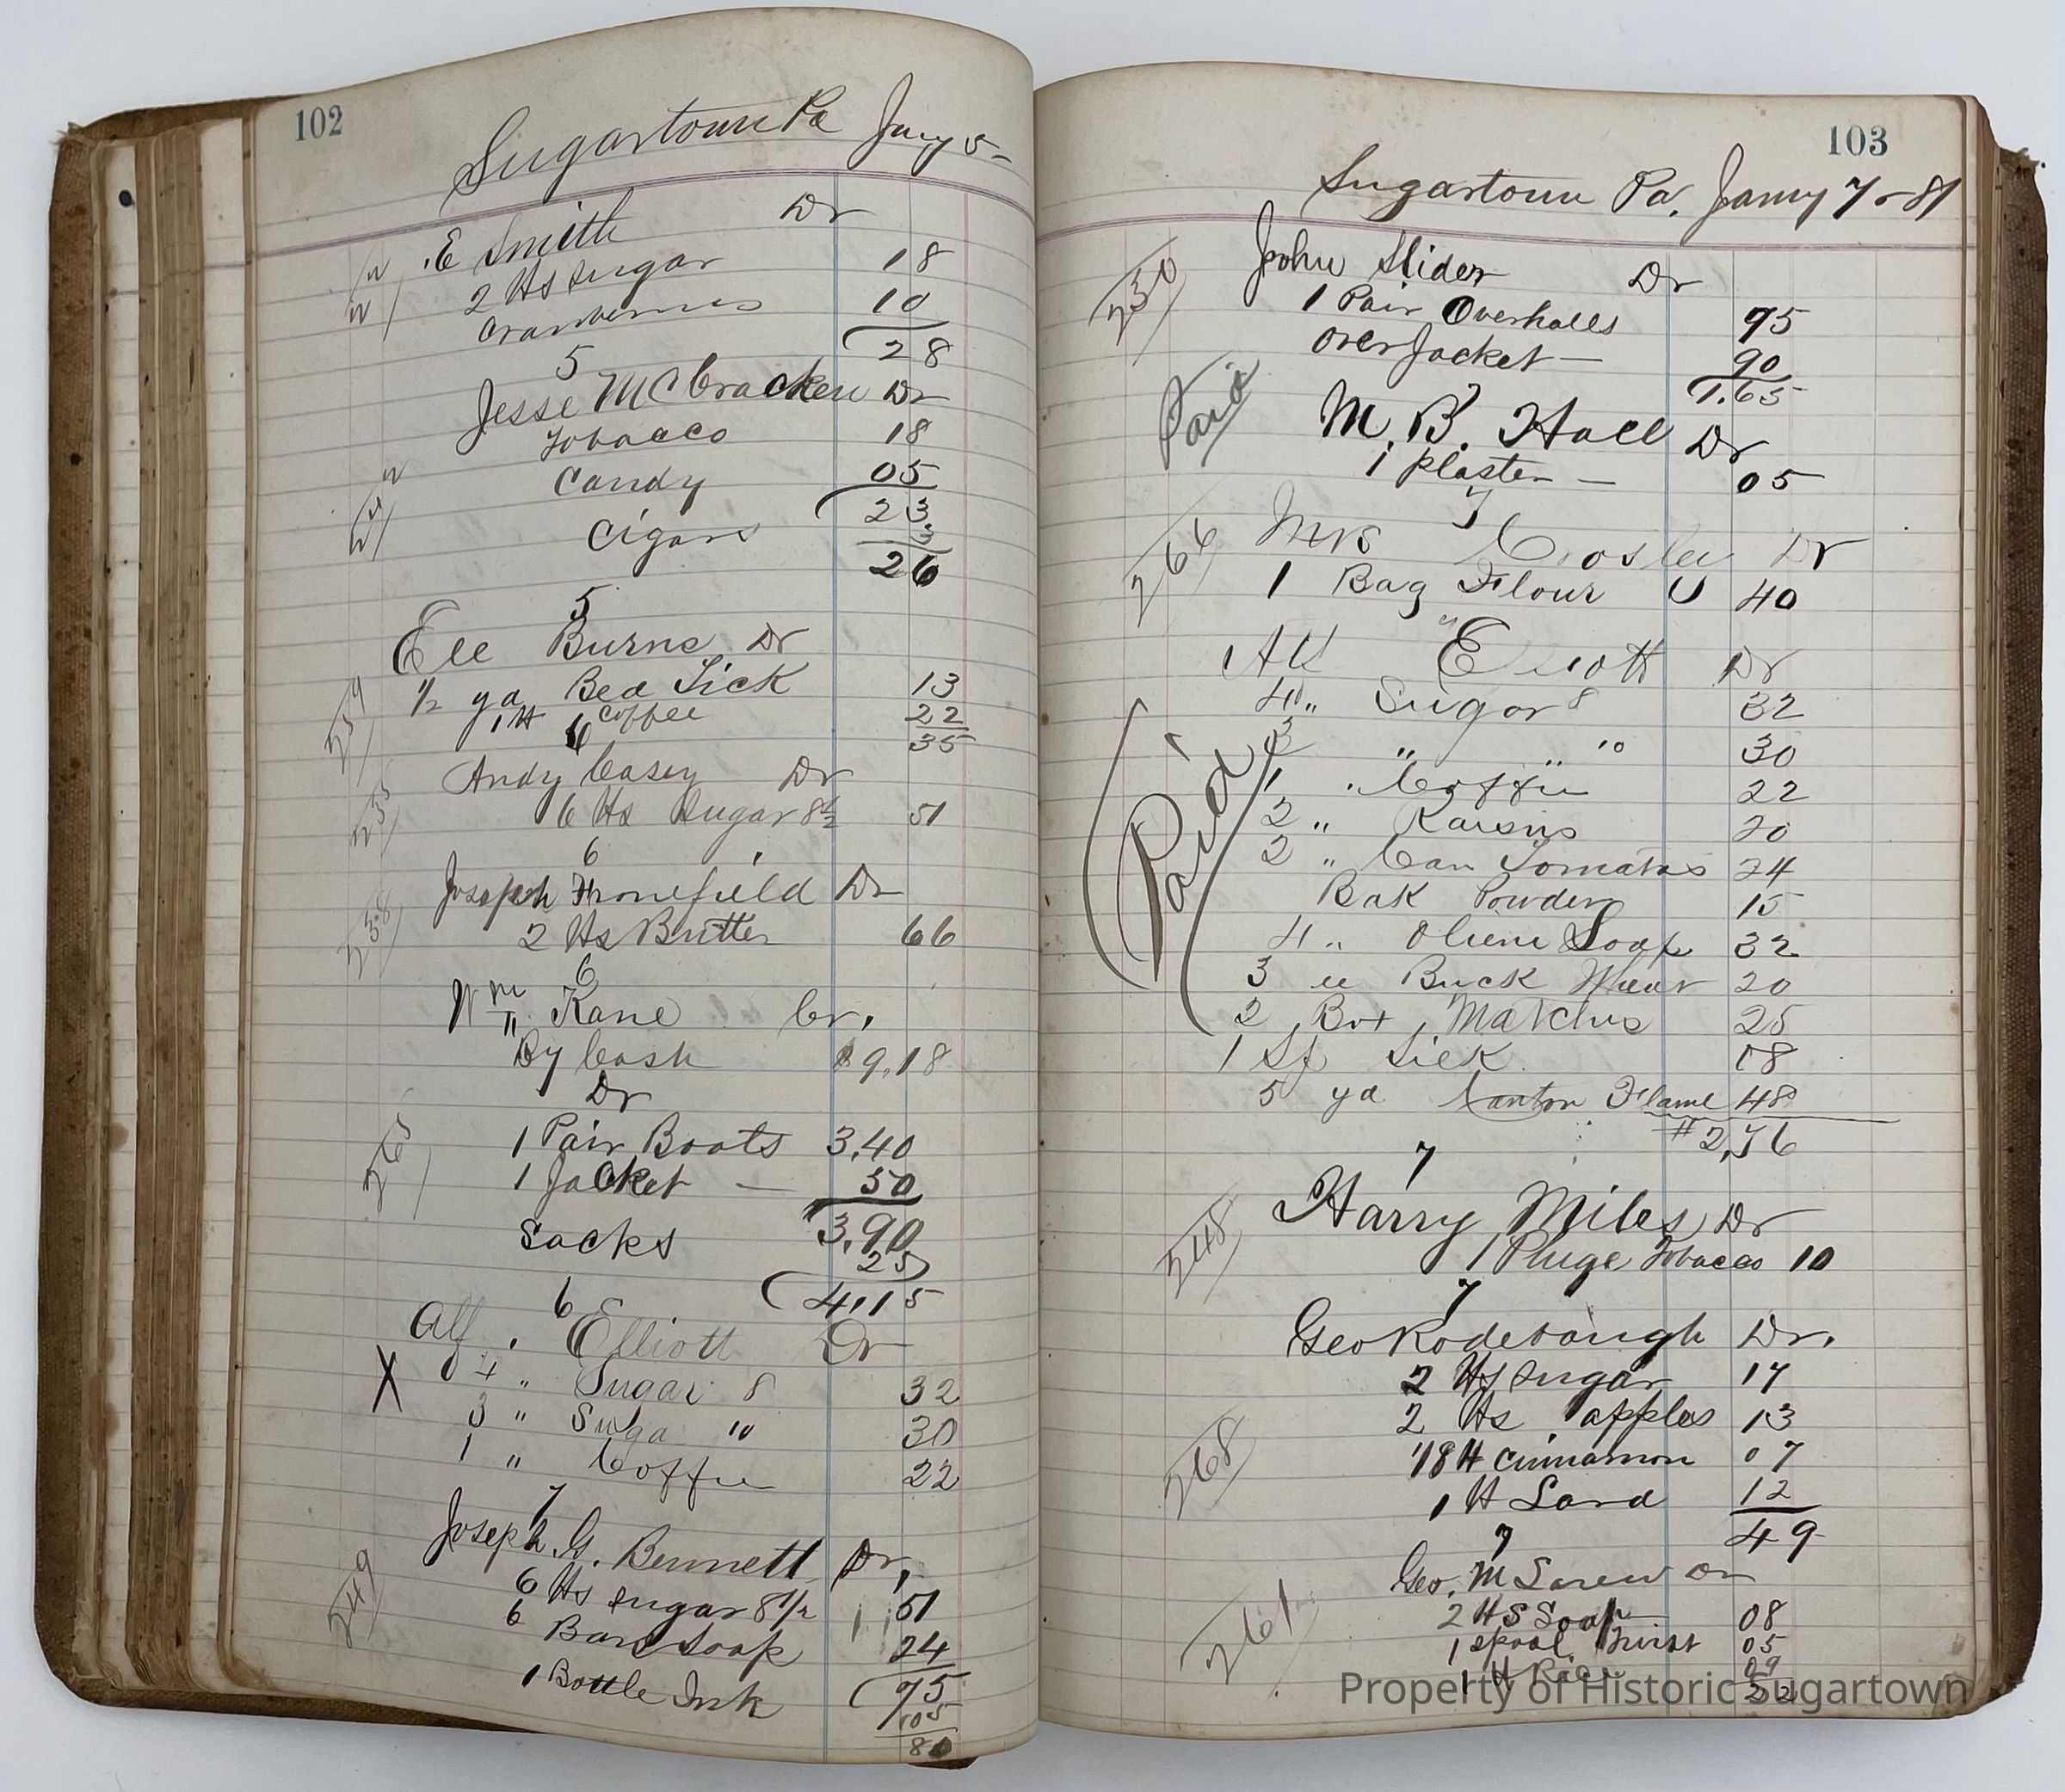 102
Sugartown Pa Jany 5-
E Smith Dr
2 lbs sugar 18
Cranberries 10
28
5
Jesse McCracken Dr
Tobacco 18
Candy 05
23
Cigars 3
26
5
Ell Burns Dr
1/2 yd Bed Tick 13
1 lb coffee 22
35
259
6
Andy Casey Dr
6 lbs Sugar 8 1/2 51
255
6
Joseph Fronefield Dr
2 lbs Butter 66
238
6
Wm Kane Cr.
By Cash $9,18
Dr
1 Pair Boots 3,40
1 Jacket — 50
3,90
Socks 25
4,15
265
6
Alf. Elliott Dr
X 4 " Sugar 8 32
3 " Suga 10 30
1 " Coffie 22
7
Joseph. G. Bennett Dr,
6 lbs sugar 8 1/2 51
6 Bars Soap 24
75
1 Bottle Ink 05
80
249
103
Sugartown Pa. Jany 7 - 81
John Slider Dr
1 Pair Overhalls 75
over Jacket — 90
1.65
230
Paid
7
M. B. Hall Dr
1 plaster — 05
7
Mrs Crosley Dr
1 Bag Flour U 40
266
"
Alf Eliott Dr
4 " Sugar 8 32
3 " " 10 30
1 " Coffie 22
2 " Raisins 20
2 " Can Tomatos 24
Bak Powder 15
4 " Oliene Soap 32
3 " Buck Wheat 20
2 Box Matches 25
1 Sp Silk 08
5 yd Canton Flanel 48
$2,76
Paid
7
Harry Miles Dr
1 Pluge Tobacco 10
248
7
Geo Rodebaugh Dr.
2 lbs sugar 17
2 lbs apples 13
1/8 lb cinnamon 07
1 lb Lard 12
49
268
7
Geo. McLarew Dr
2 lbs Soap 08
1 spool Twist 05
1 lb Rice 09
22
261
Property of Historic Sugartown